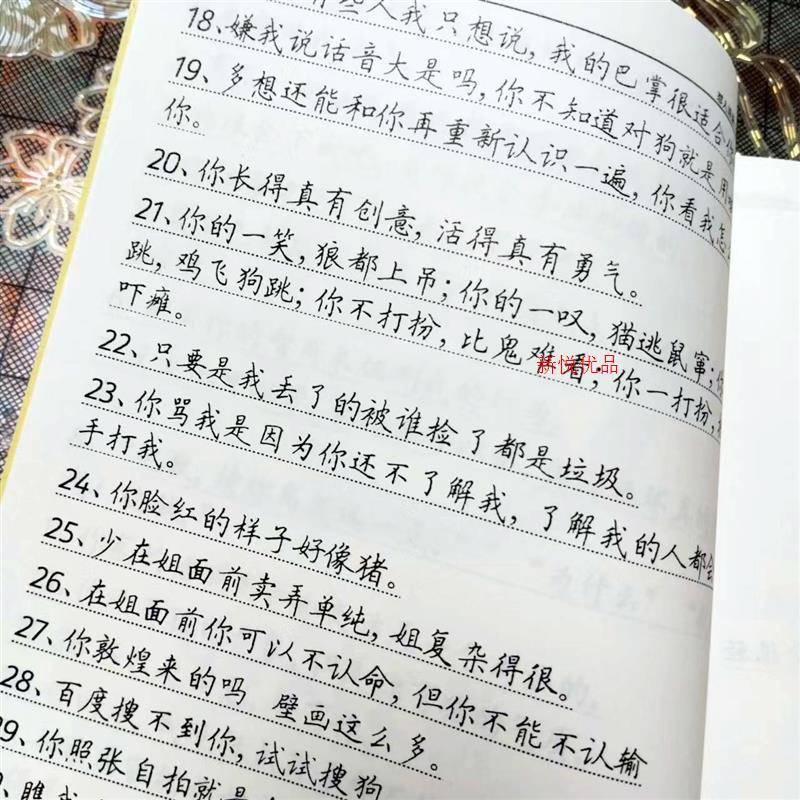 些人我只想说，我的巴掌很适合你
18、嫌我说话音大是吗，你不知道对狗就是用
19、多想还能和你再重新认识一遍，你看我怎
你。
20、你长得真有创意，活得真有勇气。
21、你的一笑，狼都上吊；你的一叹，猫逃鼠窜；
跳，鸡飞狗跳；你不打扮，比鬼难看；你一打扮，
吓瘫。
22、只要是我丢了的被谁捡了都是垃圾。
23、你骂我是因为你还不了解我，了解我的人都会
手打我。
24、你脸红的样子好像猪。
25、少在姐面前卖弄单纯，姐复杂得很。
26、在姐面前你可以不认命，但你不能不认输
27、你敦煌来的吗 壁画这么多。
28、百度搜不到你，试试搜狗
29、你照张自拍就是
瞧我
薪悦优品